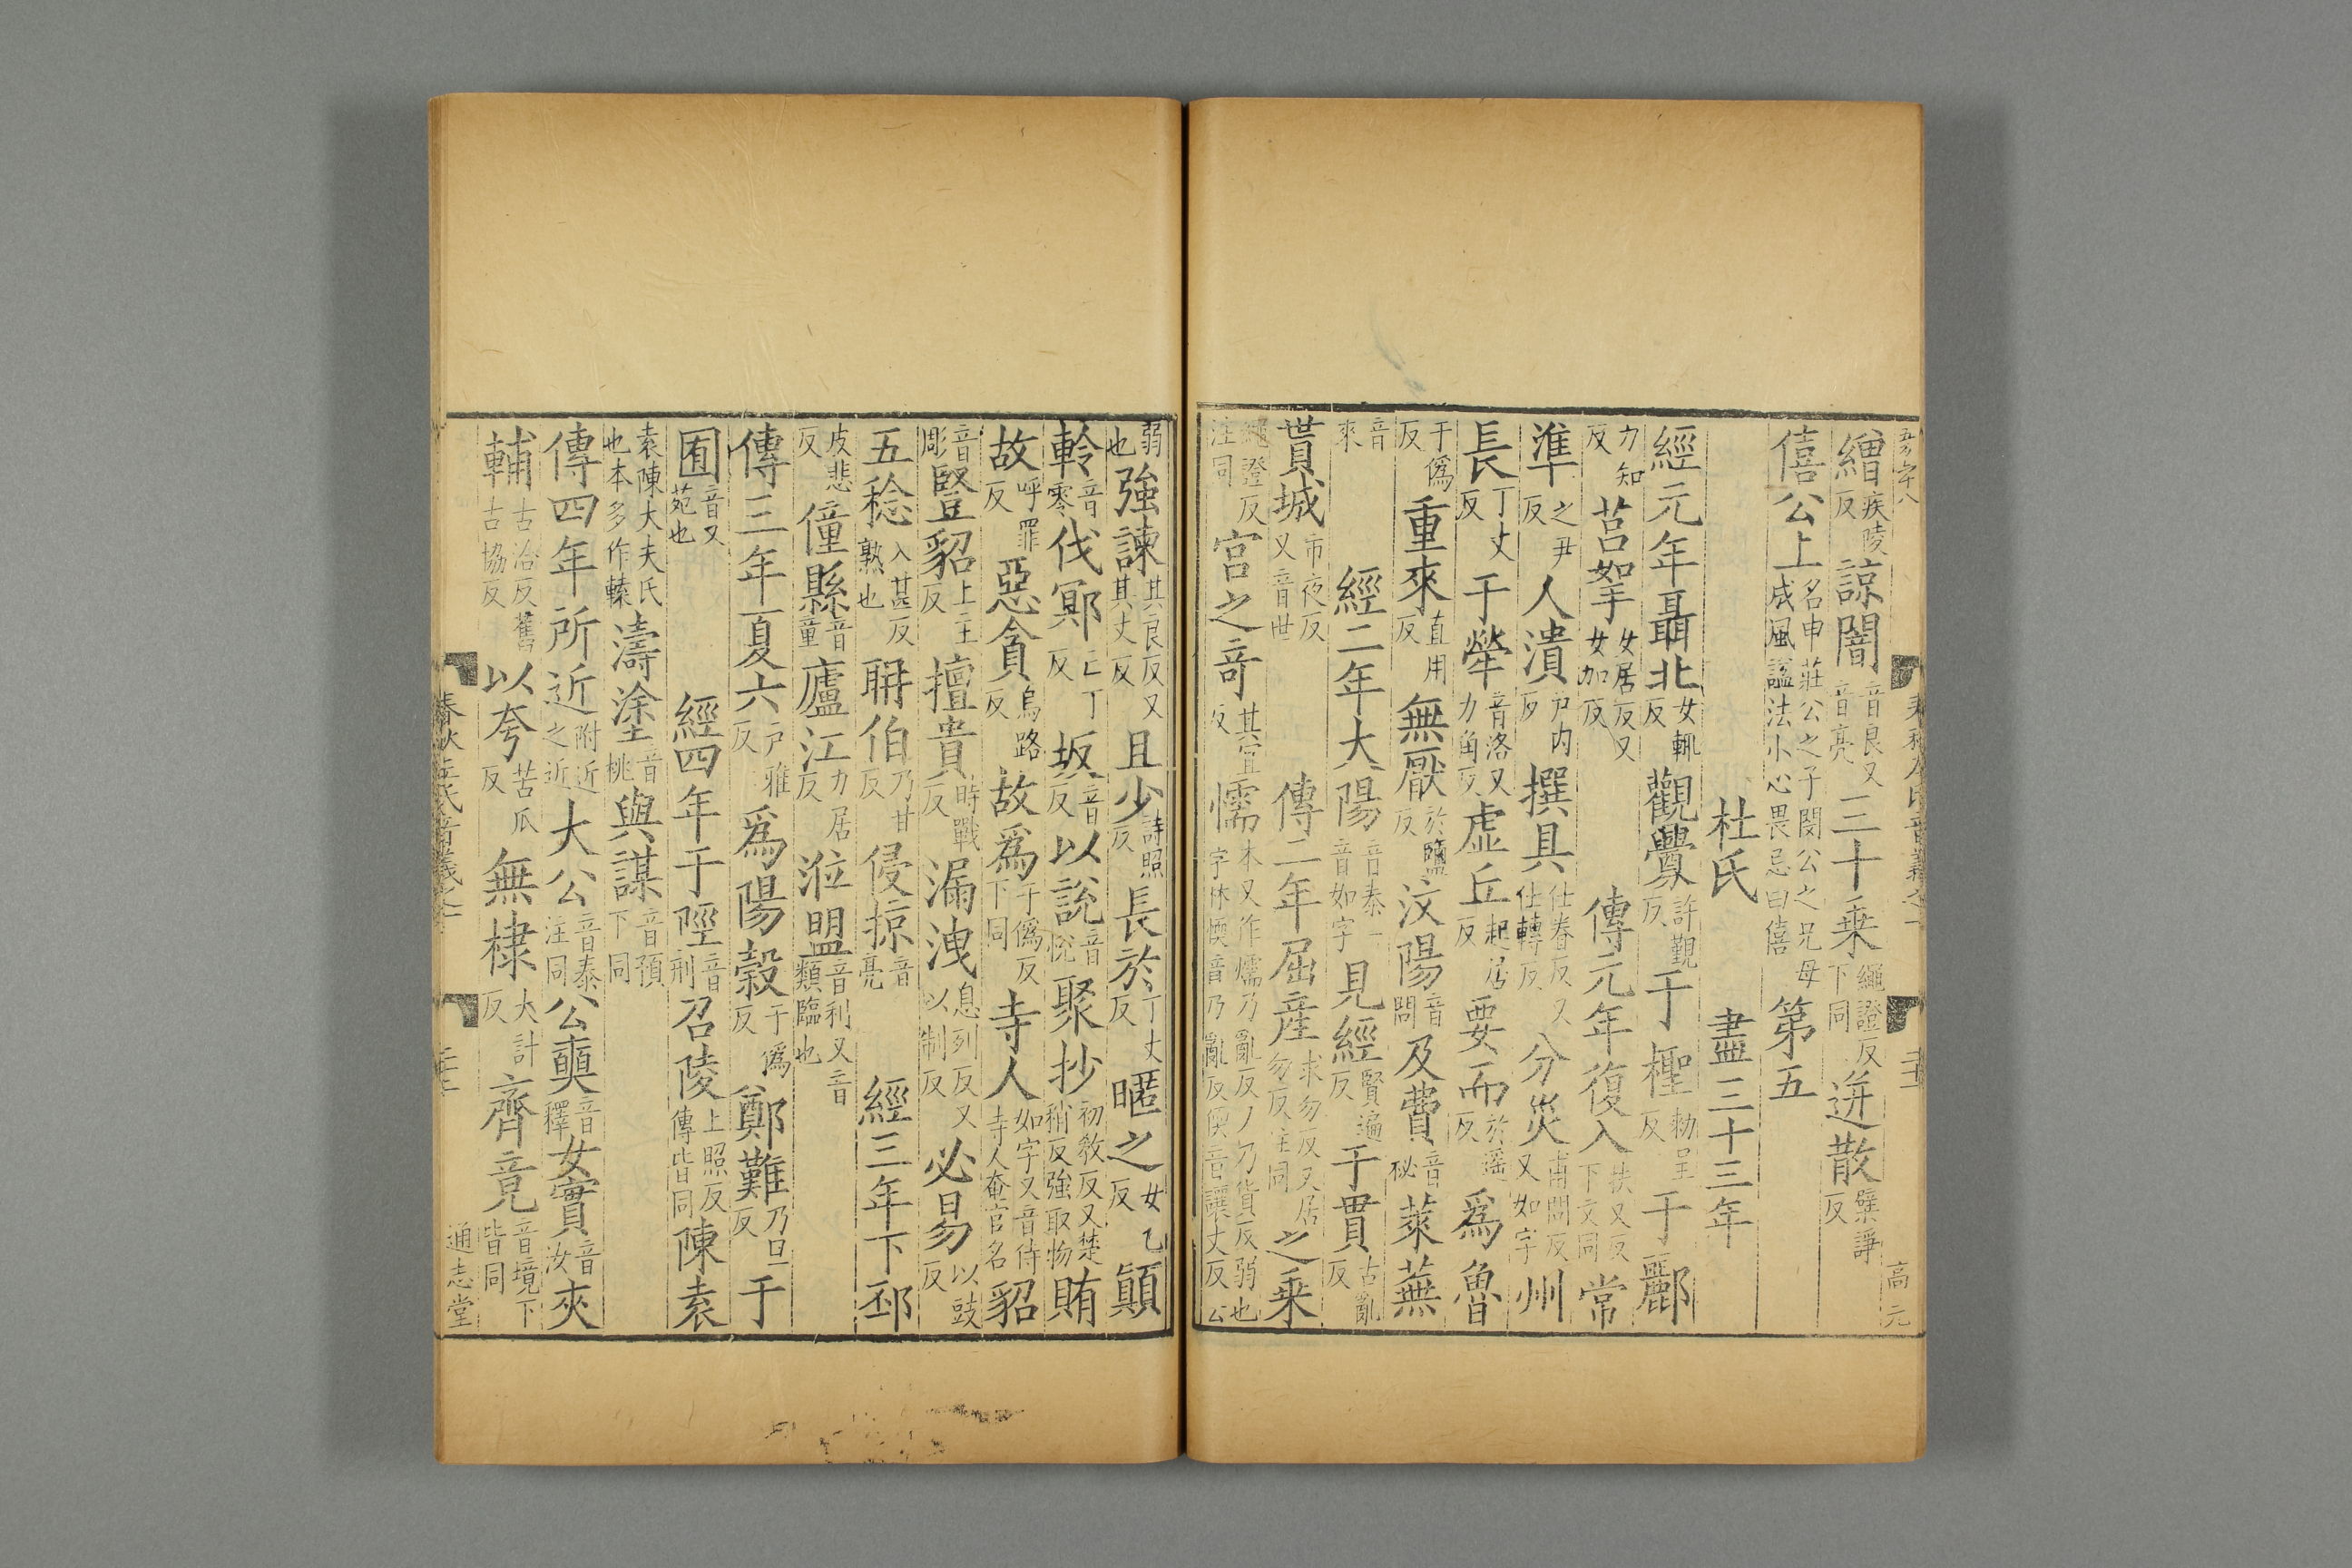 繒疾陵反諒闇音良又音亮三十乗繩證反下同迸散檗諍反
僖公上名申莊公之子閔公之兄母成風謚法小心畏忌曰僖第五
杜氏 盡三十三年
經元年聶北女輒反觀釁許覲反于檉勑呈反于酈
力知反莒挐女居反又女加反 傳元年復入扶又反下文同常
準之尹反人潰户内反撰具仕眷反又仕轉反分災甫問反又如字州
長丁丈反于犖音洛又力角反虚丘起居反要而於遥反爲魯
于僞反重來直用反無厭於鹽反汶陽音問及費音祕萊蕪
音來 經二年大陽音泰一音如字見經賢遍反于貫古亂反
貰城市夜反又音世 傳二年屈産求勿反又居勿反注同之乗
繩證反注同宫之竒其宜反懦本又作懦乃亂反又乃貨反弱也字林愞音乃亂反偄音讓丈反公
弱也強諫其良反又其丈反且少詩照反長於丁丈反暱之女乙反顛
軨音零伐鄍亡丁反坂音反以説音悅聚抄初敎反又楚稍反強取物賄
故呼罪反惡貪烏路反故爲于僞反下同寺人如字又音侍寺人奄官名貂
音彫豎貂上主反擅貴時戰反漏洩息列反又以制反必易以豉反
五稔入甚反熟也聃伯乃甘反侵掠音亮 經三年下邳
皮悲反僮縣音童廬江力居反涖盟音利又音類臨也
傳三年夏六户雅反爲陽穀于僞反鄭難乃旦反于
囿音又苑也 經四年于陘音刑召陵上照反傳皆同陳袁
袁陳大夫氏也本多作轅濤塗音桃與謀音預下同
傳四年所近附近之近大公音泰注同公奭音釋女實音汝夾
輔古洽反舊古協反以夸苦瓜反無棣大計反齊竟音境下皆同
通志堂